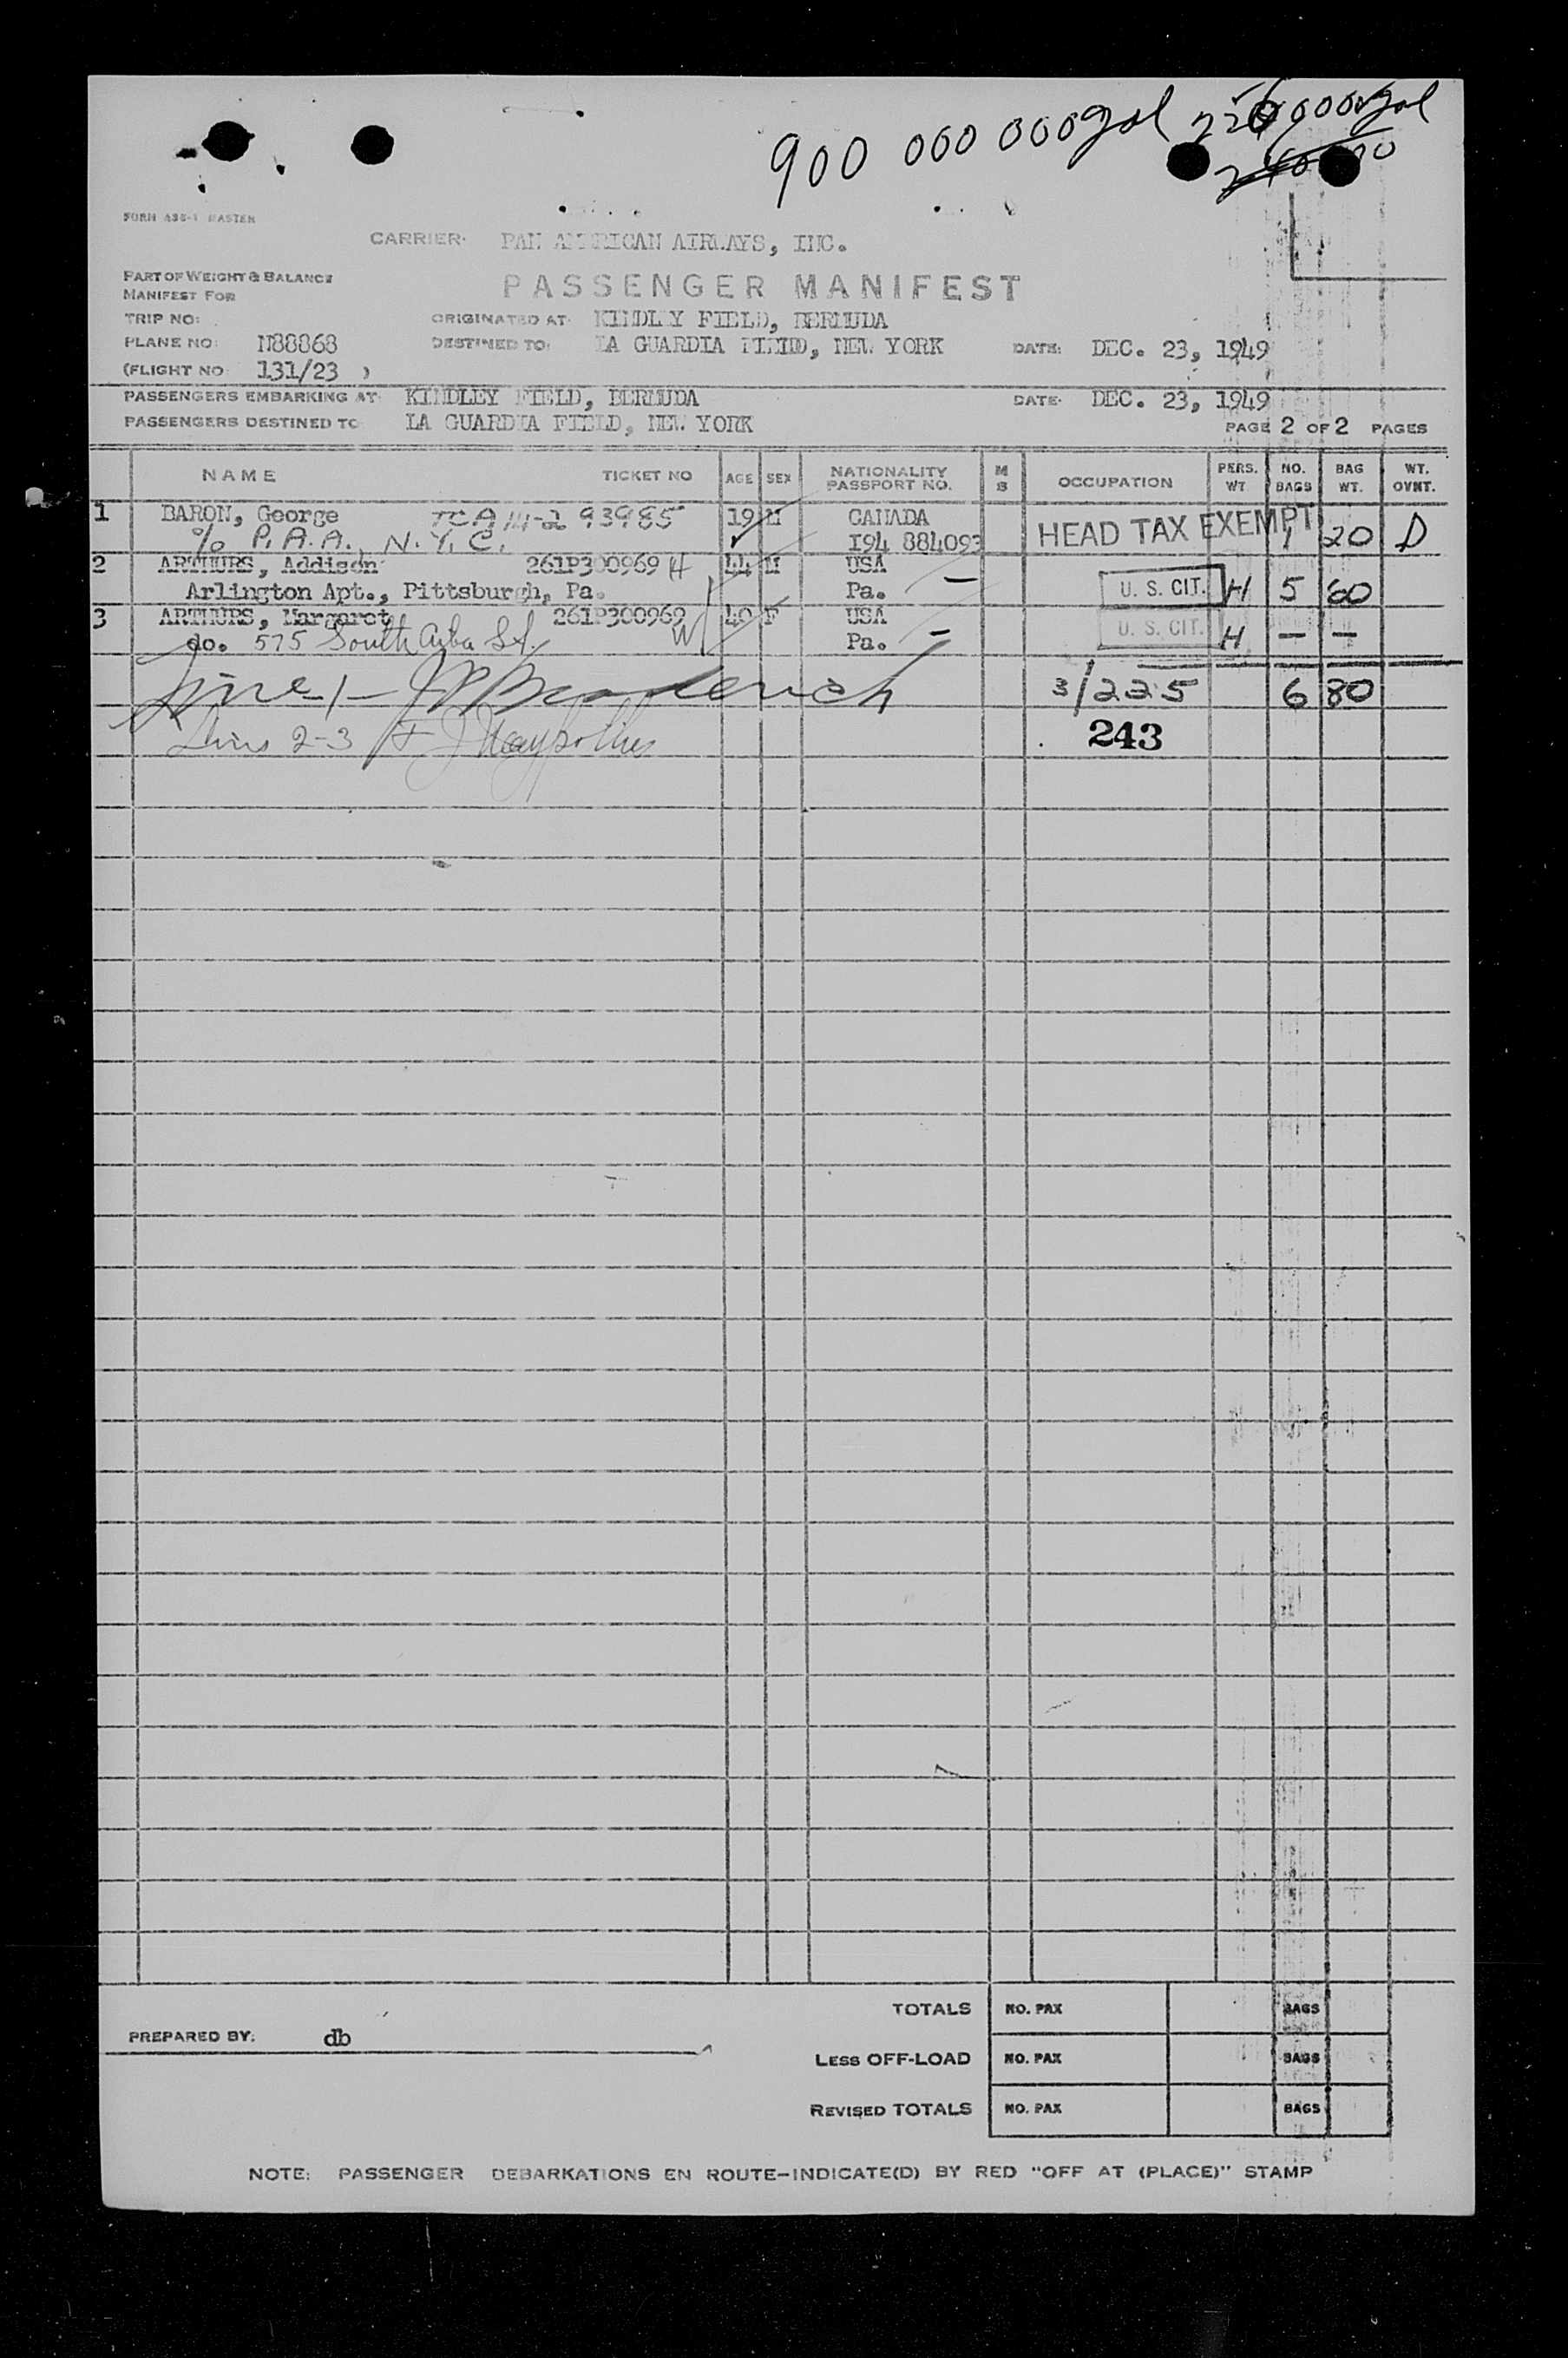 900 000 000 gal
FORM ASE-1 MASTER
CARRIER: PAN AMERICAN AIRWAYS, INC.
PART OF WEIGHT & BALANCE
MANIFEST FOR
PASSENGER MANIFEST
TRIP NO:
ORIGINATED AT: KINDLEY FIELD, BERMUDA
PLANE NO: N88868
DESTINED TO: LA GUARDIA FIELD, NEW YORK DATE: DEC. 23, 1949
(FLIGHT NO 131/23 )
PASSENGERS EMBARKING AT: KINDLEY FIELD, BERMUDA DATE: DEC. 23, 1949
PASSENGERS DESTINED TO LA GUARDIA FIELD, NEW YORK
PAGE 2 OF 2 PAGES
NAME TICKET NO AGE SEX NATIONALITY PASSPORT NO. M S OCCUPATION PERS. WT. NO. BAGS BAG WT. WT. OVNT.
1 BARON, George TCA 14-2 93985 19 M CANADA HEAD TAX EXEMPT 1 20 D
% P.A.A., N.Y.C. I94 884093
2 ARTHURS, Addison 261P300969 H 44 M USA
Arlington Apt., Pittsburgh, Pa. Pa. – U. S. CIT. H 5 60
3 ARTHURS, Margaret 261P300969 40 F USA
do. 575 South St. W Pa. – U. S. CIT. H – –
Line 1 – 3/225 6 80
Lines 2-3 243
TOTALS NO. PAX BAGS
PREPARED BY: db
Less OFF-LOAD NO. PAX BAGS
REVISED TOTALS NO. PAX BAGS
NOTE: PASSENGER DEBARKATIONS EN ROUTE-INDICATE(D) BY RED "OFF AT (PLACE)" STAMP